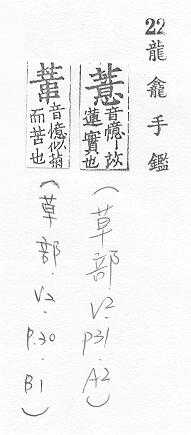 22 龍龕手鑑
薏
音憶丨故
蓮實也
(草部.V2.P31.A2)
音憶似
而苦也
(草部.V2.P.30.B1)